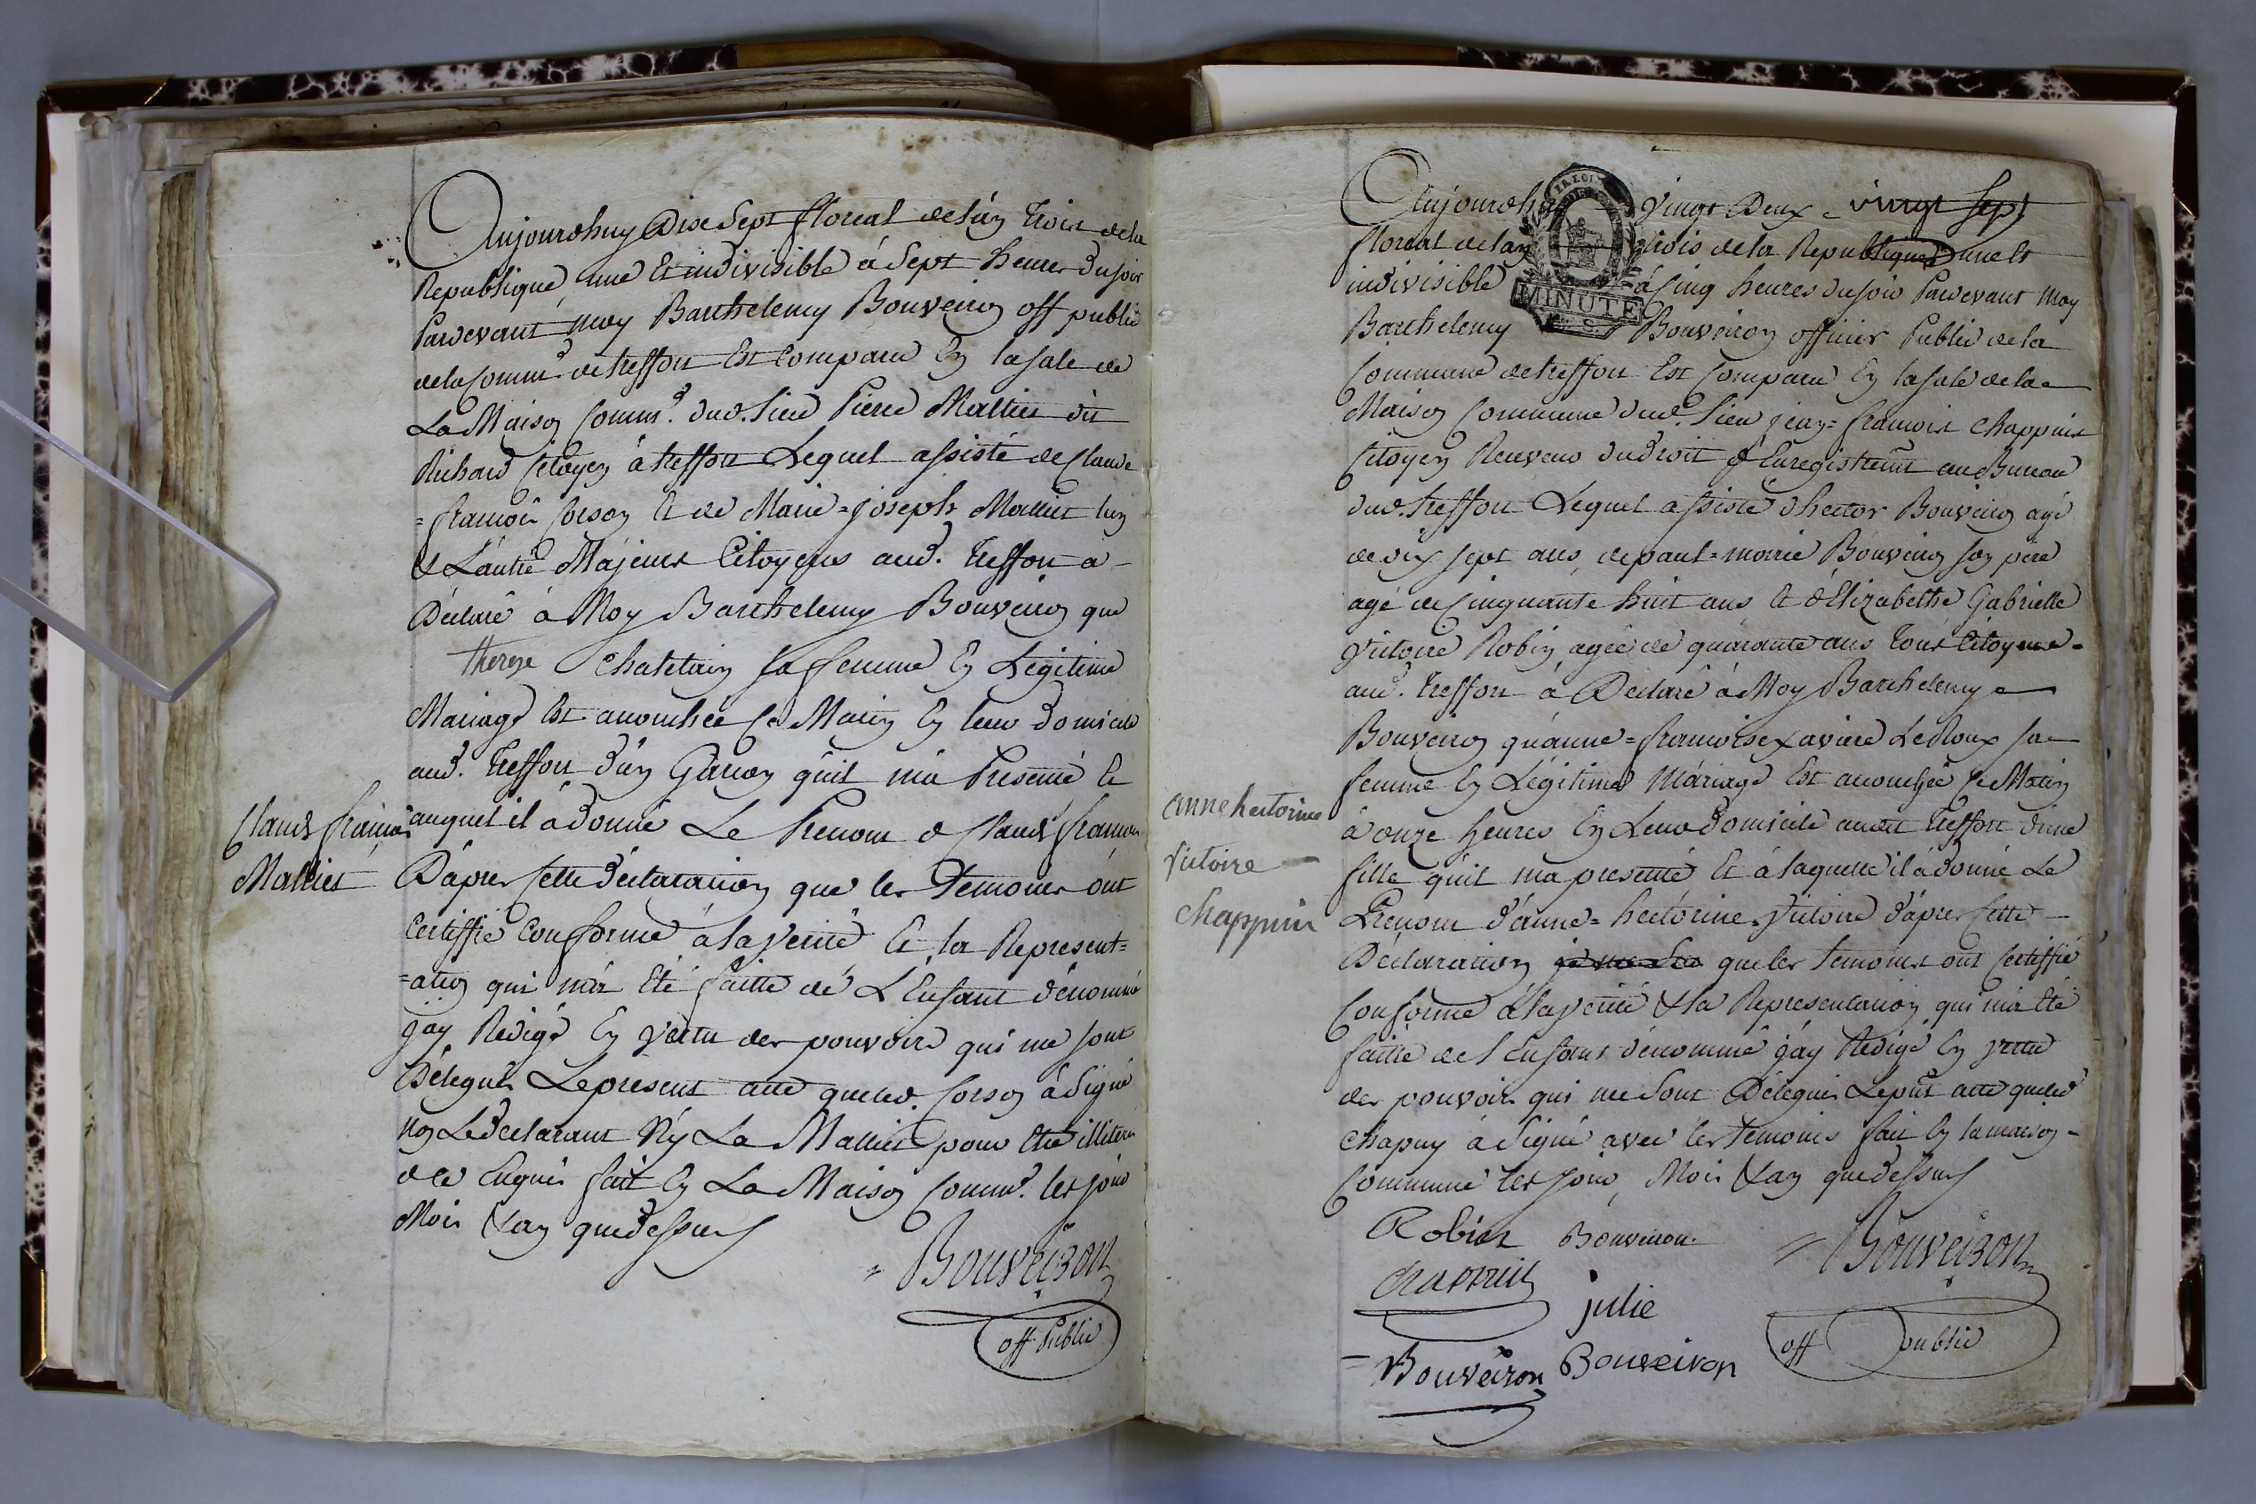 Aujourdhuy Dixe Sept floreal de lán Trois de la
Republique une Et indivisible á Sept heures du soir
Pardevant moy Barthelemy Bouveiron off public
de la Comm.e de treffort Est Comparu En la sale de
La Maison Comm.e dud. lieu Pierre Mallies dit
Richard Citoyen à treffort Lequel assisté de Claude
=françois Corson Et de Marie=Joseph Malliet lun
& L'autre Májeurs Citoyens aud. Treffort à
Déclaré à Moy Barthelemy Bouveiron que
therese Chatelain sa femme En Légitime
Mariage Est accouchée Ce Matin En leur Domicile
aud. Treffort d'un Garçon qúil má Presenté Et
Claude françois
Malliet
auquel il à donné Le Prenom de Claude françois
D'áprès Cette déclaration que les Temoins ónt
Certiffié Conforme à la Verité Et la Represent=
=ation qui m'á Eté faitte de L'Enfant dénommé
j'ay Redigé En Vertu des pouvoirs qui me sont
Délegués Le present acte que led. Corson à Signé
Non Le Declarant Ny La Malliet pour Etre illiterés
de ce Enquis fait En La Maison Comm.e les jour
Mois & an que dessus
Bouveiron
off Public
Aujourdhuy Vingt Deux vingt sept
floreal de lan trois de la Republique une Et
indivisible à Cinq heures du soir Pardevant Moy
LA LOI
MINUTE
Barthelemy Bouveiron officier Public de la
Commune de treffort Est Comparu En la sale de la
Maison Commune dud. lieu jean=françois Chappuis
Citoyen Receveur du Droit d'Enregistrem.t au Bureau
dud. treffort Lequel assisté d'hector Bouveiron agé
de dix sept ans, de paul=marie Bouveiron son père
agé de Cinquante huit ans Et d'Elizabethe Gabrielle
Victoire Robin agée de quarante ans Tous Citoyens
aud. treffort à Déclaré à Moy Barthelemy
Bouveiron qu'anne=françoise Xaviere Ledoux sa
femme En Légitime Máriage Est accouchée Ce Matin
anne hectorine
Victoire
Chappuis
à onze heures En Leur domicile audit Treffort d'une
fille qúil ma presenté Et à laquelle il à donné Le
Prenom d'anne=hectórine Victoire d'après Cette
Déclaration que les temoins ont Certiffié
Conforme à la verité & la Representation qui m'a Eté
faitte de l'Enfant dénommé j'áy Redigé En vertu
des pouvoirs qui me Sont Délegués Le pñt acte que led
Chapuy à Signé avec les temoins fait En la maison
Commune les jour, Mois & an que dessus
Robin Bouveiron Bouveiron
Chappuis
julie
Bouveiron Bouveiron
off public